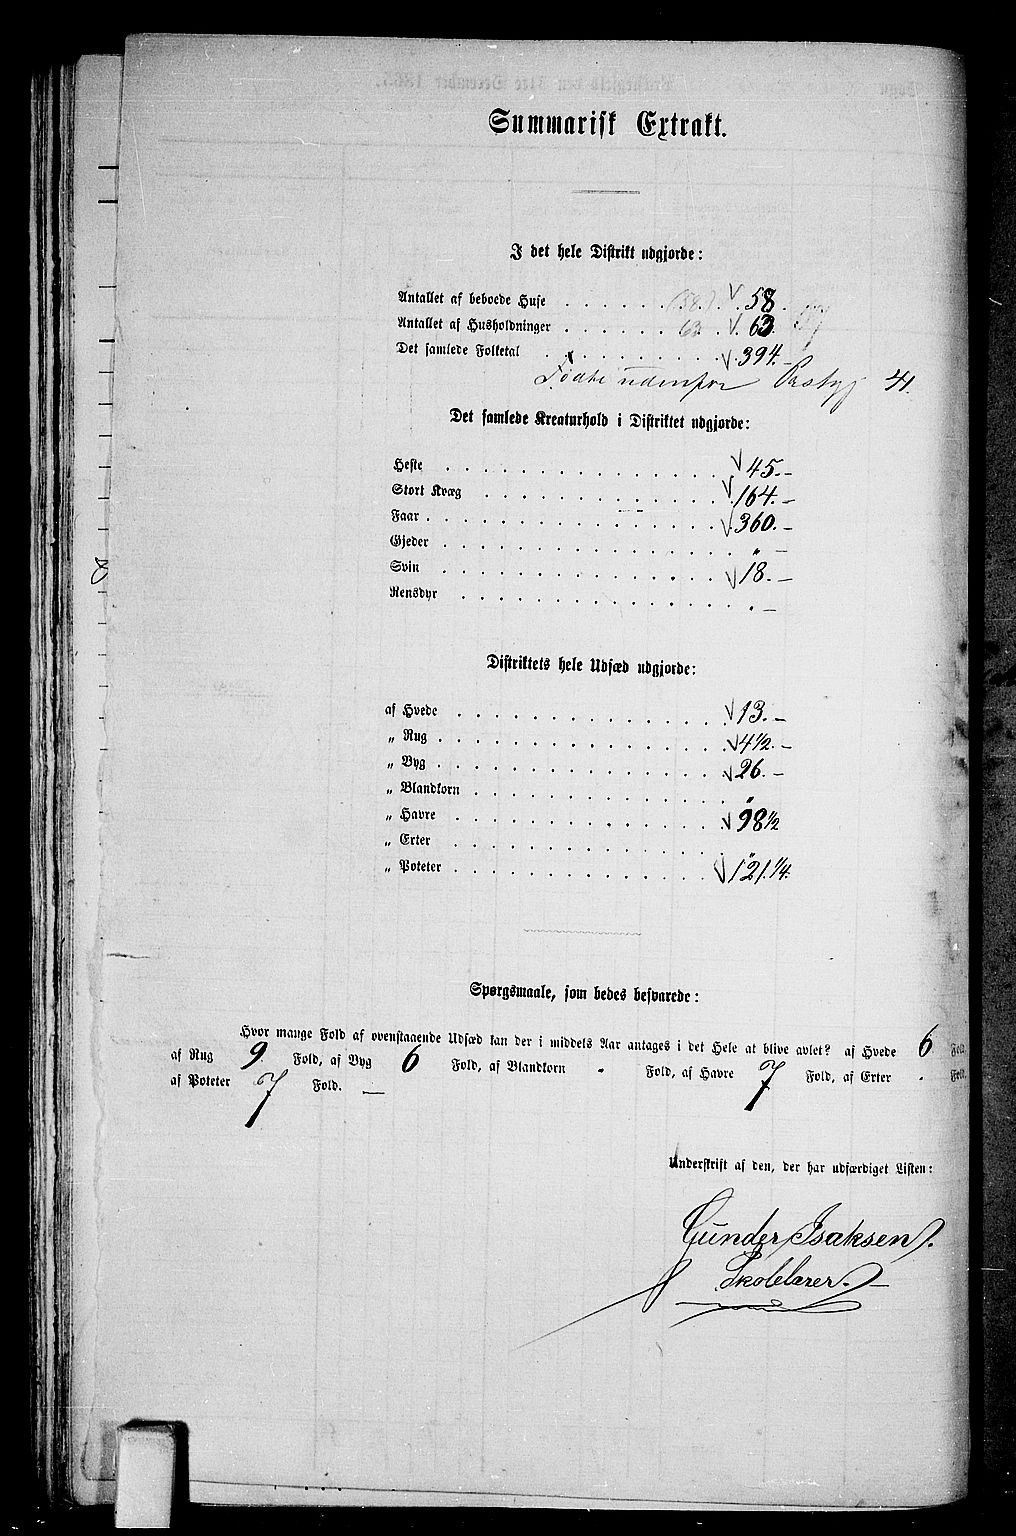 Summarisk Extrakt.
I det hele Distrikt udgjorde:
Antallet af beboede Huse . . . . . . (58.) . √ 58.
Antallet af Husholdninger . . . . . . 63 . √ 63.
Det samlede Folketal . . . . . . . . . √ 394.–
Fødte udenfor Præstgj 41.
Det samlede Kreaturhold i Distriktet udgjorde:
Heste . . . . . . . . . . . . √ 45.–
Stort Kvæg . . . . . . . . . . √ 164.–
Faar . . . . . . . . . . . . . √ 360.–
Gjeder . . . . . . . . . . . . " –
Svin . . . . . . . . . . . . √ 18.–
Rensdyr . . . . . . . . . . . . . –
Distriktets hele Udsæd udgjorde:
af Hvede . . . . . . . . . . . √ 13.–
„ Rug . . . . . . . . . . . . √ 4 1/2.–
„ Byg . . . . . . . . . . . . √ 26.–
„ Blandkorn . . . . . . . . . . "
„ Havre . . . . . . . . . . . √ 98 1/2
„ Erter . . . . . . . . . . . "
„ Poteter . . . . . . . . . . √ 121. 1/4.
Spørgsmaale, som bedes besvarede:
Hvor mange Fold af ovenstaaende Udsæd kan der i middels Aar antages i det Hele at blive avlet? af Hvede 6 Fold,
af Rug 9 Fold, af Byg 6 Fold, af Blandkorn " Fold, af Havre 7 Fold, af Erter . Fold,
af Poteter 7 Fold. —
Underskrift af den, der har udfærdiget Listen:
Gunder Isaksen.
Skolelærer. –